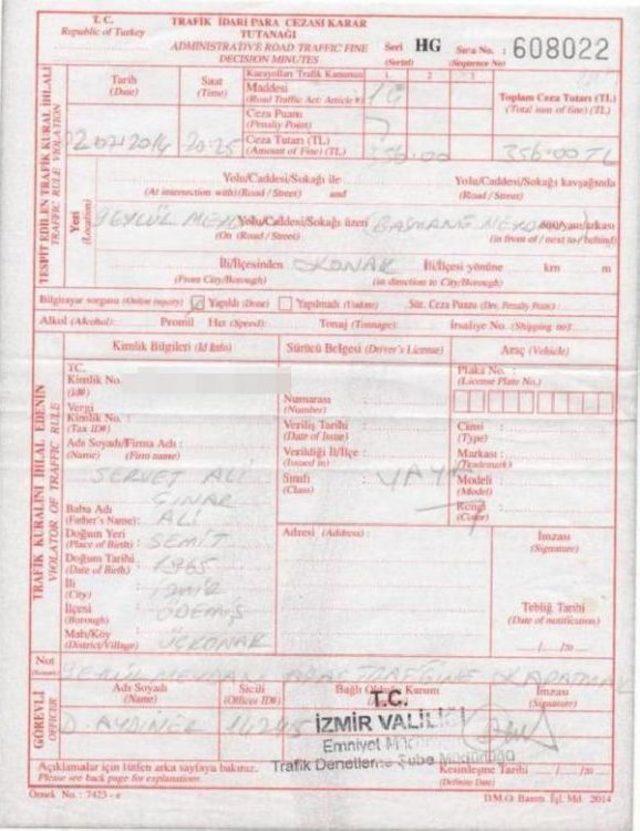 T. C.
Republic of Turkey
TRAFİK İDARİ PARA CEZASI KARAR
TUTANAĞI
ADMINISTRATIVE ROAD TRAFFIC FINE
DECISION MINUTES
Seri HG Sıra No. : 608022
(Serial) (Sequence No)
TESPİT EDİLEN TRAFİK KURAL İHLALİ
TRAFFIC RULE VIOLATION
Tarih
(Date)
Saat
(Time)
Karayolları Trafik Kanunun 1 2 3
Maddesi
(Road Traffic Act: Article #)
Ceza Puanı
(Penalty Point)
Ceza Tutarı (TL)
(Amount of Fine) (TL)
Toplam Ceza Tutarı (TL)
(Total sum of fine) (TL)
20:25 356.00 356.00 TL
Yeri
(Location)
Yolu/Caddesi/Sokağı ile Yolu/Caddesi/Sokağı kavşağında
(At intersection with) (Road / Street) and (Road / Street)
9 EYLÜL Yolu/Caddesi/Sokağı üzeri
(On (Road / Street) (in front of / next to / behind)
İli/İlçesinden İli/İlçesi yönüne km m
(From City/Borough) (in direction to City/Borough)
Bilgisayar sorgusu (Online inquiry) Yapıldı (Done) Yapılmadı (Undone) Sür. Ceza Puanı (Drv. Penalty Point) :
Alkol (Alcohol): Promil Hız (Speed): Tonaj (Tonnage): İrsaliye No. (Shipping no):
TRAFİK KURALINI İHLAL EDENİN
VIOLATOR OF TRAFFIC RULE
Kimlik Bilgileri (Id Info) Sürücü Belgesi (Driver's License) Araç (Vehicle)
T.C.
Kimlik No.
(Id#)
Vergi
Kimlik No. :
(Tax ID#)
Adı Soyadı/Firma Adı :
(Name) (Firm name)
SERVET ALİ
ÇINAR
Baba Adı
(Father's Name): ALİ
Doğum Yeri
(Place of Birth) :
Doğum Tarihi
(Date of Birth) : 1965
İli
(City) : İzmir
İlçesi
(Borough) : ÖDEMİŞ
Mah/Köy
(District/Village) : ÜÇKONAK
Numarası
(Number)
Veriliş Tarihi
(Date of Issue)
Verildiği İl/İlçe :
(Issued in)
Sınıfı
(Class)
YAYA
Adresi (Address) :
Plaka No. :
(License Plate No.)
Cinsi
(Type)
Markası :
(Trademark)
Modeli
(Model)
Rengi
(Color)
İmzası
(Signature)
Tebliğ Tarihi
(Date of notification)
/ /20
Not
ARAÇ TRAFİĞİNE KAPATMAK
GÖREVLİ
OFFICER
Adı Soyadı
(Name)
Sicili
(Officer ID#)
Bağlı Olduğu Kurum
İmzası
(Signature)
T.C.
İZMİR VALİLİĞİ
Emniyet Müd
Trafik Denetleme Şube Müdürlüğü
Açıklamalar için lütfen arka sayfaya bakınız.
Please see back page for explanations.
Kesinleşme Tarihi / /20
(Definite Date)
Örnek No. : 7423 - e
D.M.O. Basım. İşl. Md. 2014